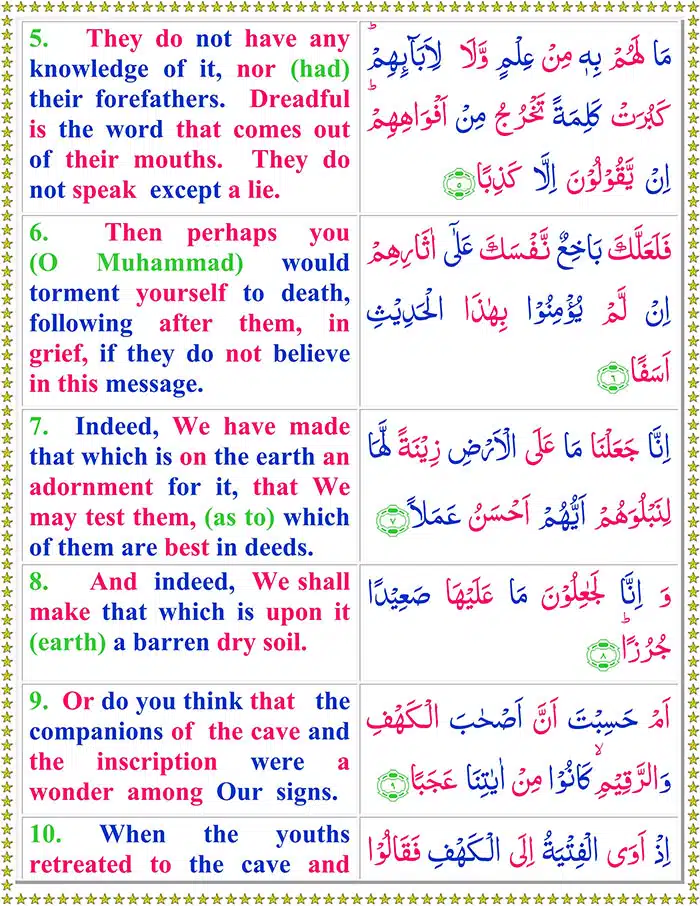 5. They do not have any
knowledge of it, nor (had)
their forefathers. Dreadful
is the word that comes out
of their mouths. They do
not speak except a lie.
مَا لَهُمْ بِهٖ مِنْ عِلْمٍ وَّلَا لِاٰبَآئِهِمْ ؕ
كَبُرَتْ كَلِمَةً تَخْرُجُ مِنْ اَفْوَاهِهِمْ ؕ
اِنْ يَّقُوْلُوْنَ اِلَّا كَذِبًا ۵
6. Then perhaps you
(O Muhammad) would
torment yourself to death,
following after them, in
grief, if they do not believe
in this message.
فَلَعَلَّكَ بَاخِعٌ نَّفْسَكَ عَلٰٓى اٰثَارِهِمْ
اِنْ لَّمْ يُؤْمِنُوْا بِهٰذَا الْحَدِيْثِ
اَسَفًا ۶
7. Indeed, We have made
that which is on the earth an
adornment for it, that We
may test them, (as to) which
of them are best in deeds.
اِنَّا جَعَلْنَا مَا عَلَى الْاَرْضِ زِيْنَةً لَّهَا
لِنَبْلُوَهُمْ اَيُّهُمْ اَحْسَنُ عَمَلًا ۷
8. And indeed, We shall
make that which is upon it
(earth) a barren dry soil.
وَ اِنَّا لَجٰعِلُوْنَ مَا عَلَيْهَا صَعِيْدًا
جُرُزًا ؕ ۸
9. Or do you think that the
companions of the cave and
the inscription were a
wonder among Our signs.
اَمْ حَسِبْتَ اَنَّ اَصْحٰبَ الْكَهْفِ
وَالرَّقِيْمِ ۙ كَانُوْا مِنْ اٰيٰتِنَا عَجَبًا ۹
10. When the youths
retreated to the cave and
اِذْ اَوَى الْفِتْيَةُ اِلَى الْكَهْفِ فَقَالُوْا